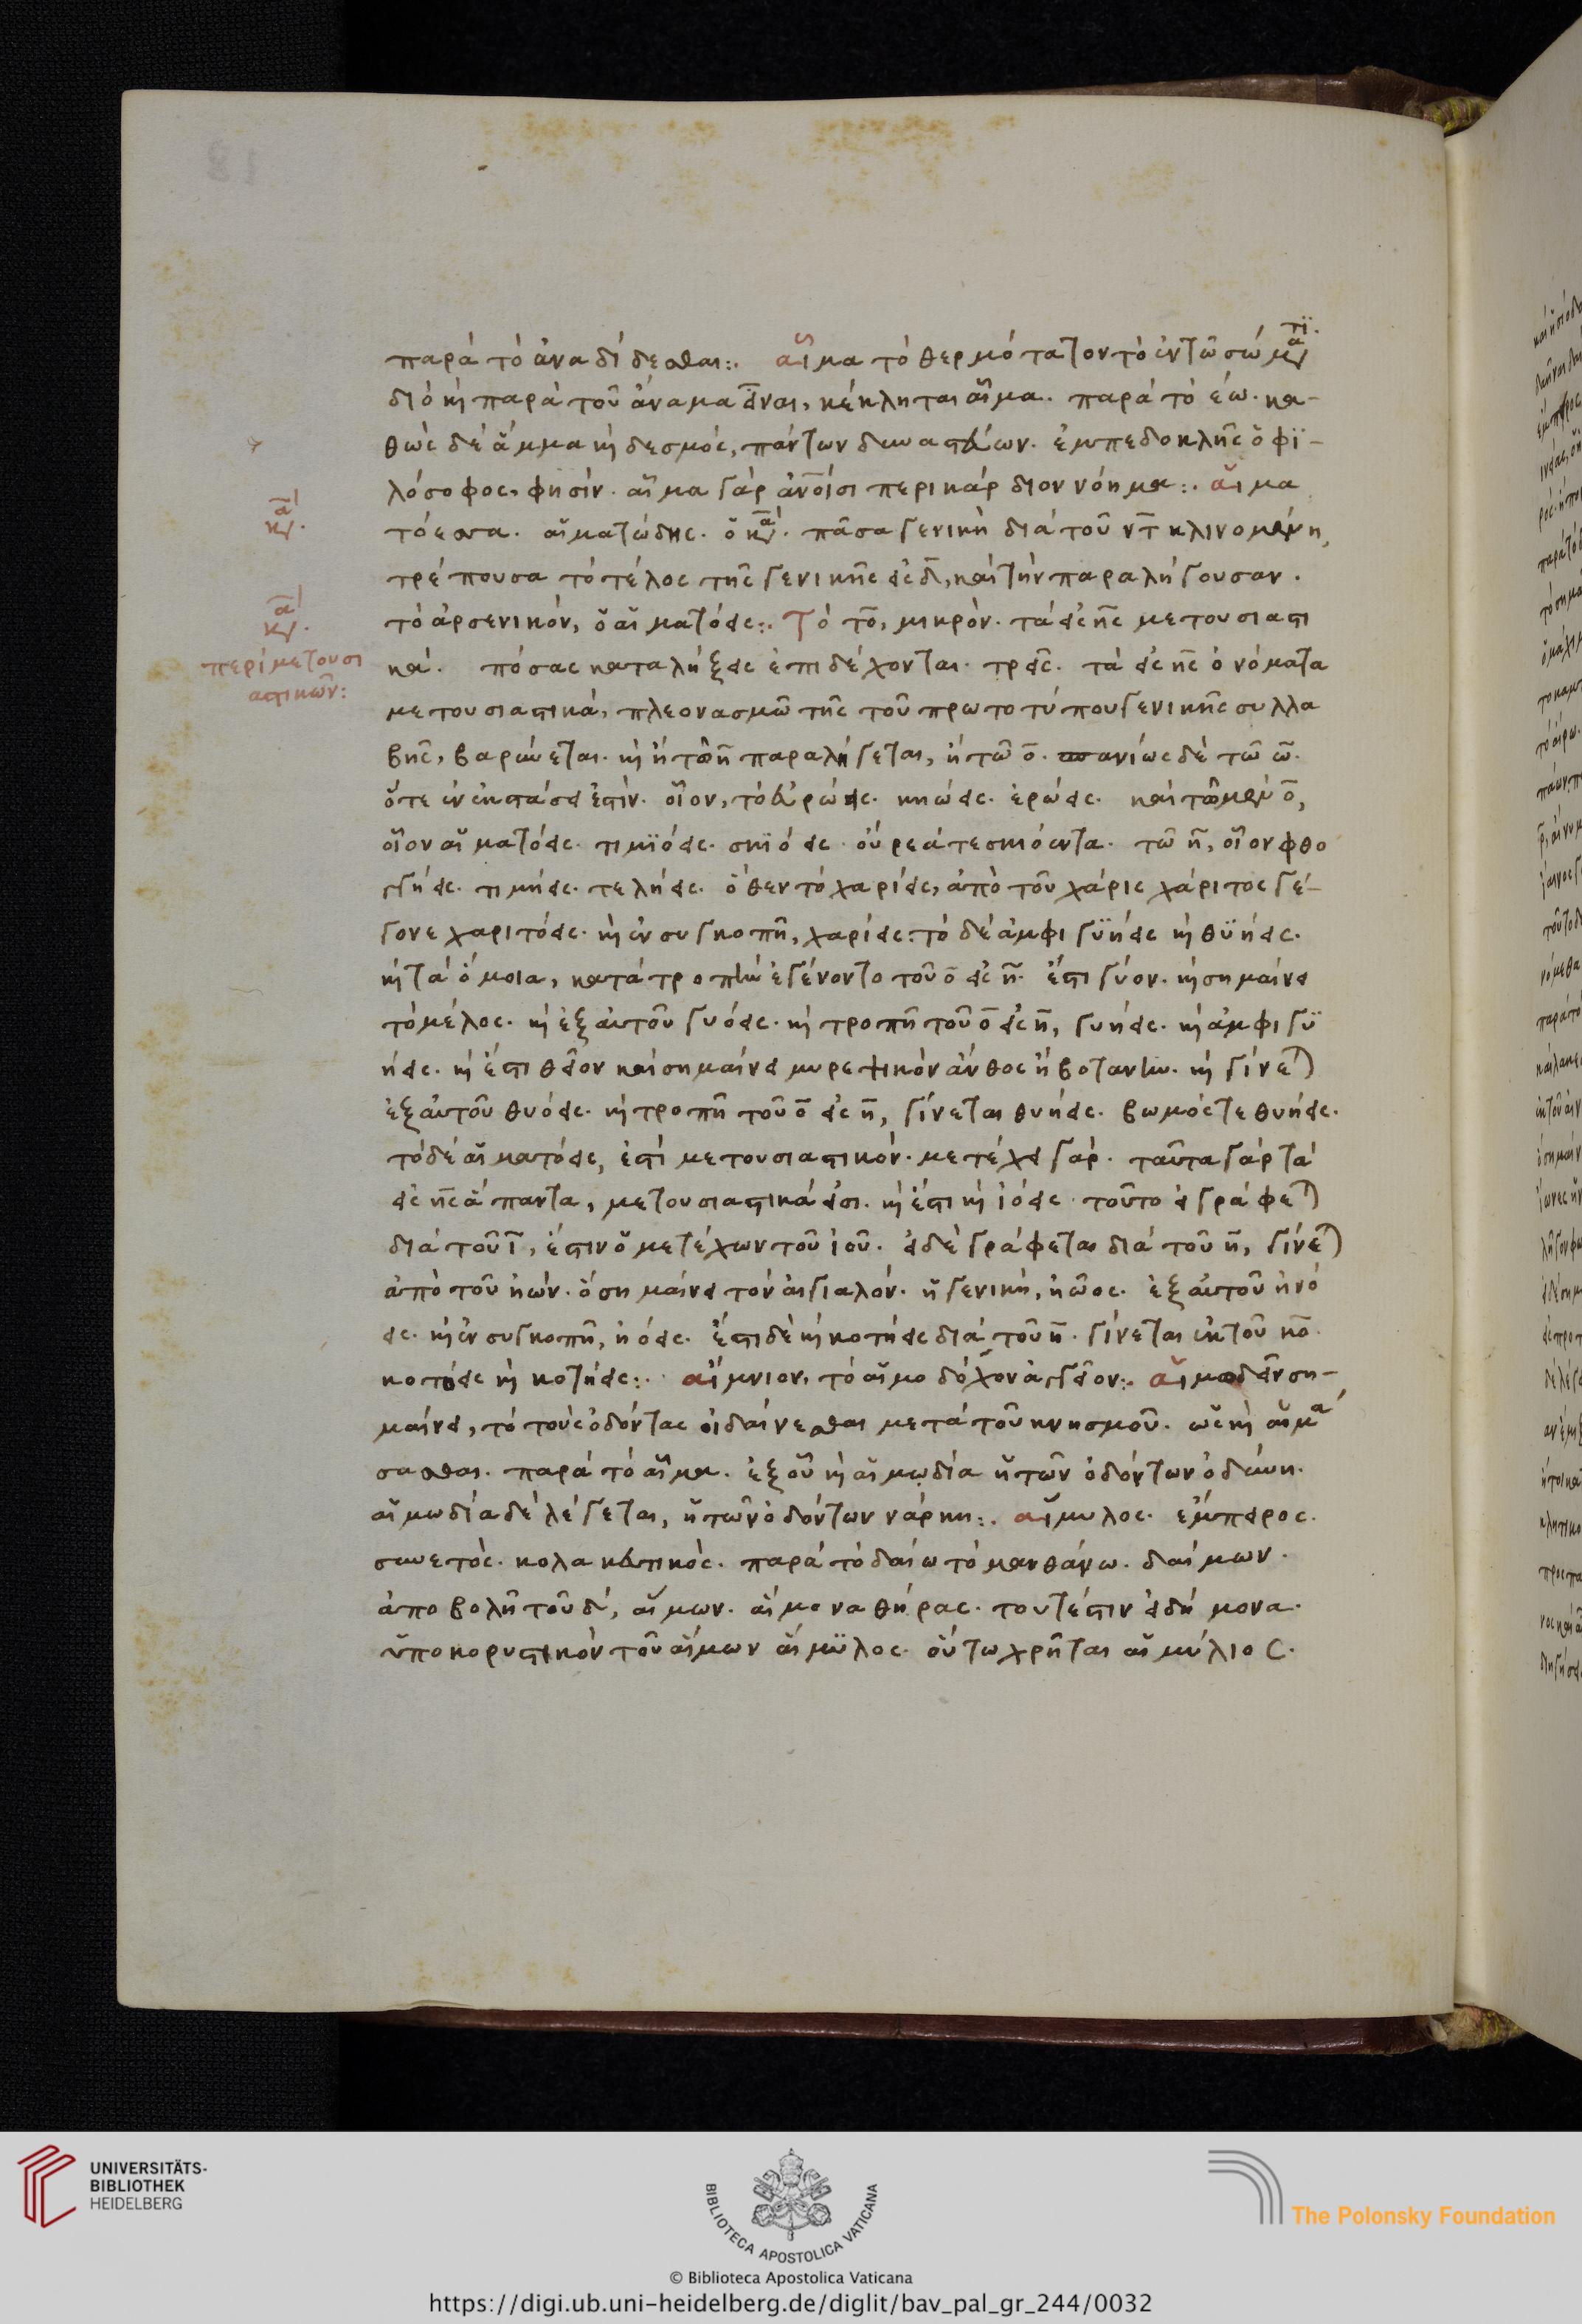 παρὰ τὸ ἀναδίδεσθαι:. αἷμα τὸ θερμότατον τὸ ἐν τῶ σώματι.
διὸ κὴ παρὰ τοῦ ἀναμα κέκληται αἷμα. παρὰ τὸ ἕω. κα-
θὼς δέ ἅμμα κὴ δεσμός, πάντων Ἐμπεδοκλῆς ὁ φϊ-
λόσοφος, φησίν. αἷμα γὰρ ἀνοῖσι περικάρδιον νόημα:. αἱμα
τόεσσα. αἱματώδης. ὁ κα. πᾶσα γενικὴ διὰ τοῦ ντ κλινομένη,
τρέπουσα τὸ τέλος τῆς γενικῆς εἰς δ, καὶ τὴν παραλήγουσαν.
τὸ ἀρσενικόν, ὁ αἱματόεις:. Τὸ το, μικρόν. τὰ εἰς ης μετουσιαστι
κά. πόσας καταλήξεις ἐπιδέχονται. τρεῖς. τὰ εἰς ης ὀνόματα
μετουσιαστικά, πλεονασμῶ τῆς τοῦ πρωτοτύπου γενικῆς συλλα
βῆς, βαρύνεται. κὴ ἢ τῶ η παραλήγεται, ἢ τῶ ο. σπανίως δὲ τῶ ω.
ὅτε ἐν ἐκτάσει ἐστίν. οἷον, τὸ εὐρώεις. κηώεις. ἐρώεις. καὶ τῶ μὲν ο,
οἷον αἱματόεις. τιμϊόεις. σκϊόεις. οὔρεά τε σκιόεντα. τῶ η, οἷον φθο
γγήεις. τιμήεις. τελήεις. ὅθεν τὸ χαρίεις, ἀπὸ τοῦ χάρις χάριτος γέ-
γονε χαριτόεις. κὴ ἐν συγκοπῆ, χαρίεις: τὸ δὲ ἀμφιγϋήεις κὴ θϋήεις.
κὴ τὰ ὅμοια, κατὰ τροπὴν ἐγένοντο τοῦ ο εἰς η. ἔστι γύον. κὴ σημαίνει
τὸ μέλος. κὴ ἐξ αὐτοῦ γυόεις. κὴ τροπῆ τοῦ ο εἰς η, γυήεις. κὴ ἀμφιγϋ
ήεις. κὴ ἔστι θεῖον καὶ σημαίνει μυρεψικὸν ἄνθος ἢ βοτάνην. κὴ γίνε)
ἐξ αὐτοῦ θυόεις. κὴ τροπῆ τοῦ ο εἰς η, γίνεται θυήεις. βωμός τε θυήεις.
τὸ δὲ αἱματόεις, ἐστὶ μετουσιαστικόν. μετέχει γάρ. ταῦτα γὰρ τὰ
εἰς ης ἅπαντα, μετουσιαστικά εἰσι. κὴ ἔστι κὴ ἰόεις. τοῦτο εἰ γράφε)
διὰ τοῦ ι, ἔστιν ὁ μετέχων τοῦ ἰοῦ. εἰ δὲ γράφεται διὰ τοῦ η, γίνε)
ἀπὸ τοῦ ἠών. ὃ σημαίνει τὸν αἰγιαλόν. ἡ γενική, ἠῶος. ἐξ αὐτοῦ ἠνό
εις. κὴ ἐν συγκοπῆ, ἠόεις. ἔστι δὲ κὴ κοτήεις διὰ τοῦ η. γίνεται ἐκ τοῦ κο
κοτόεις κὴ κοτήεις:. αἵμνιον, τὸ αἱμοδόχον ἀγγεῖον:. αἱμωδεῖν ση-
μαίνει, τὸ τοὺς ὀδόντας οἰδαίνεσθαι μετὰ τοῦ κνησμοῦ. ὡς κὴ αἱμά
σασθαι. παρὰ τὸ αἷμα. ἐξ οὗ κὴ αἱμωδία ἡ τῶν ὀδόντων ὀδύνη.
αἱμωδία δὲ λέγεται, ἡ τῶν ὀδόντων νάρκη:. αἱμύλος. ἔμπειρος.
συνετός. κολακευτικός. παρὰ τὸ δαίω τὸ μανθάνω. δαίμων.
ἀποβολῆ τοῦ δ, αἵμων. αἵμονα θήρας. τουτέστιν εἰδήμονα.
ὑποκοριστικὸν τοῦ αἵμων αἱμϋλος. οὕτω χρῆται αἱμύλιος.
κα.
κα.
περὶ μετουσι
αστικῶν:
UNIVERSITÄTS-
BIBLIOTHEK
HEIDELBERG
BIBLIOTECA APOSTOLICA VATICANA
The Polonsky Foundation
© Biblioteca Apostolica Vaticana
https://digi.ub.uni-heidelberg.de/diglit/bav_pal_gr_244/0032